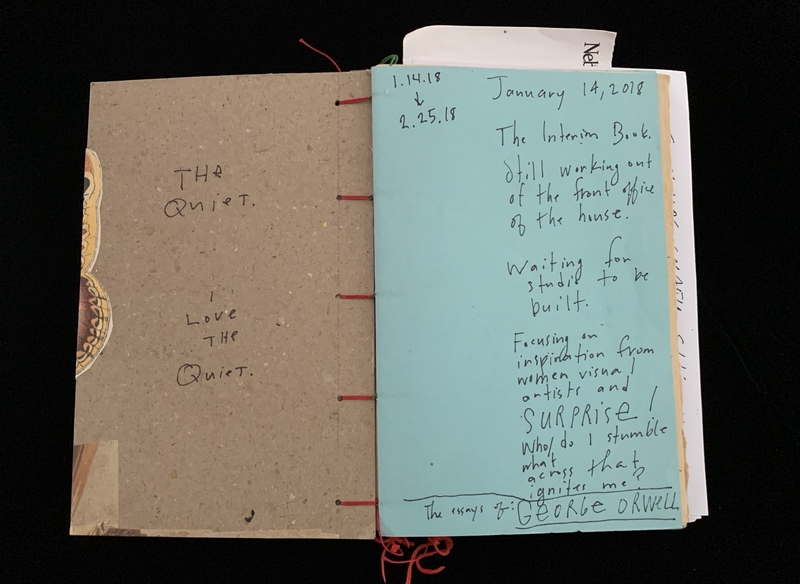 THE
QUIET.
I
LOVE
THE
QUIET.
Net
1.14.18
↓
2.25.18
January 14, 2018
The Interim Book.
Still working out
of the front office
of the house.
Waiting for
studio to be
built.
Focusing on
inspiration from
women visual
artists and
SURPRISE!
Who/do I stumble
what
across that
ignites me?
The essays of: GEORGE ORWELL